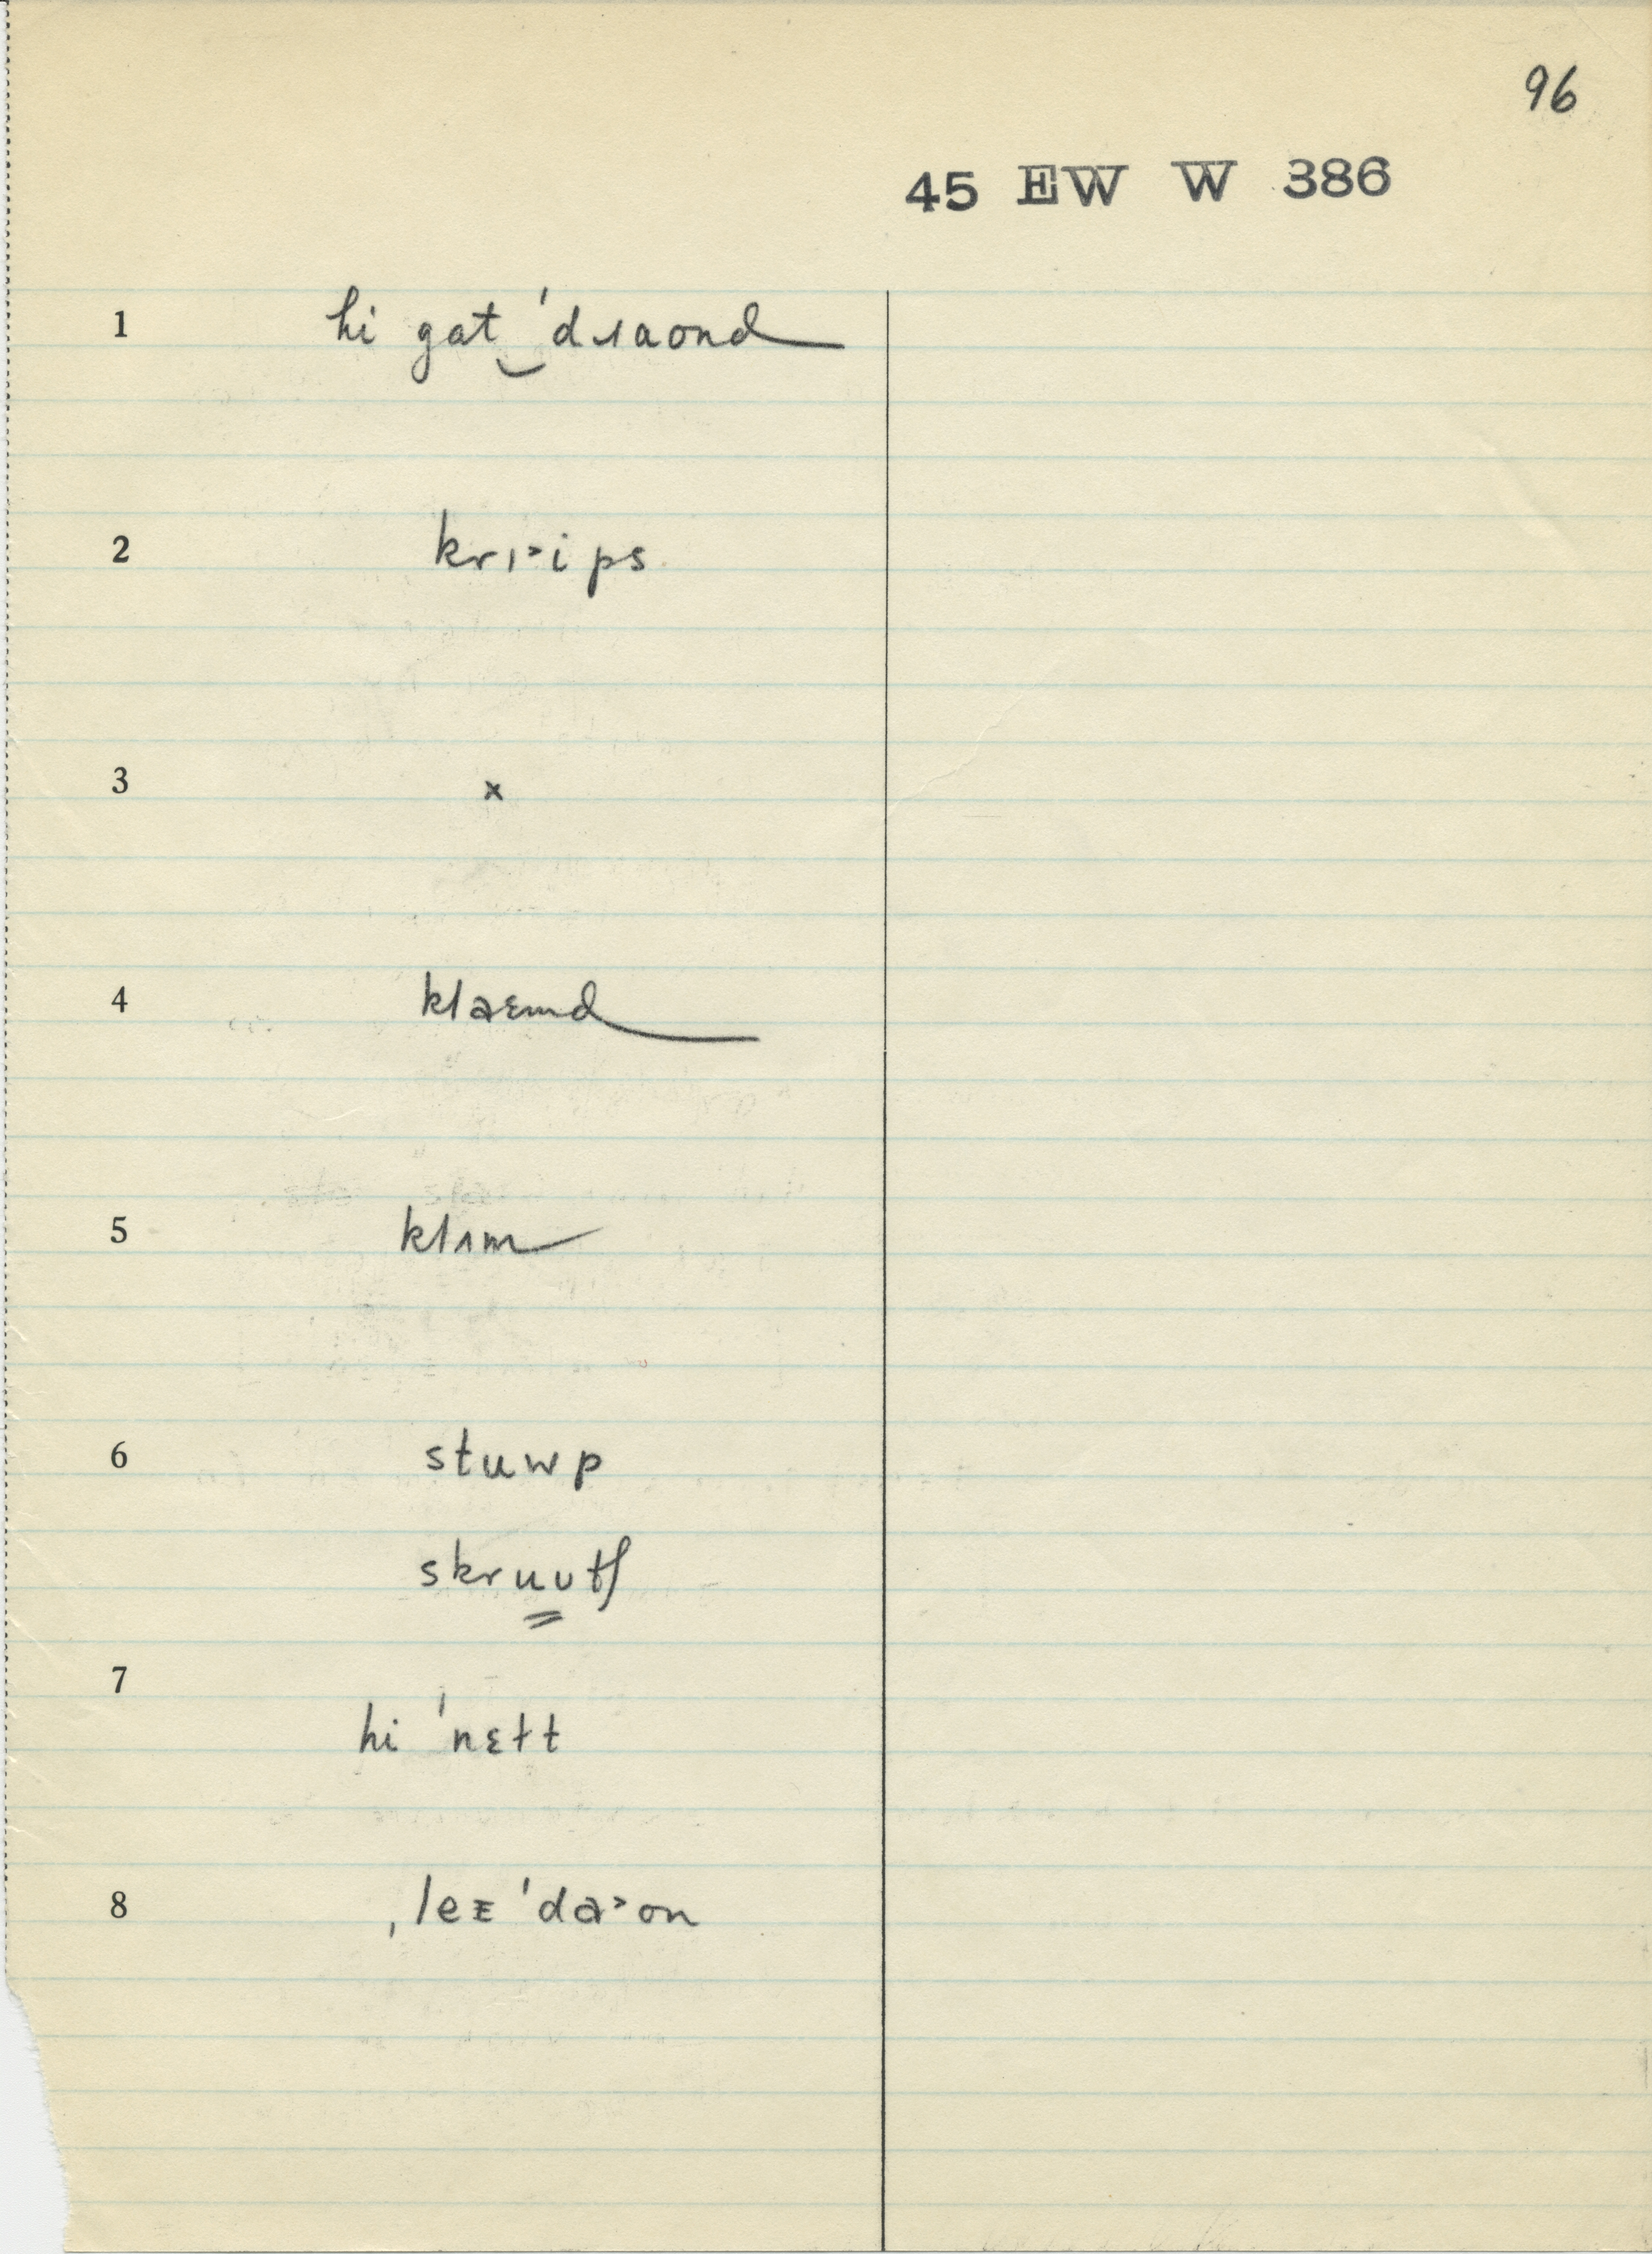 96
45 EW W 386
1 hi gat‿ˈdɹaond
2 krɪ˃ips
3 x
4 klaɛmd
5 klɪm
6 stuwp
skruʋtʃ
7
hi ˈnɛɫt
8 ˌleᴇ ˈda˃on